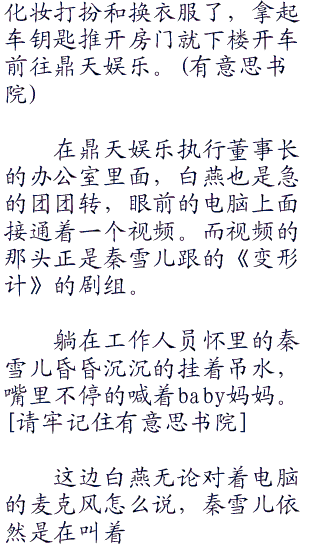 化妆打扮和换衣服了，拿起
车钥匙推开房门就下楼开车
前往鼎天娱乐。(有意思书
院)
在鼎天娱乐执行董事长
的办公室里面，白燕也是急
的团团转，眼前的电脑上面
接通着一个视频。而视频的
那头正是秦雪儿跟的《变形
计》的剧组。
躺在工作人员怀里的秦
雪儿昏昏沉沉的挂着吊水，
嘴里不停的喊着baby妈妈。
[请牢记住有意思书院]
这边白燕无论对着电脑
的麦克风怎么说，秦雪儿依
然是在叫着